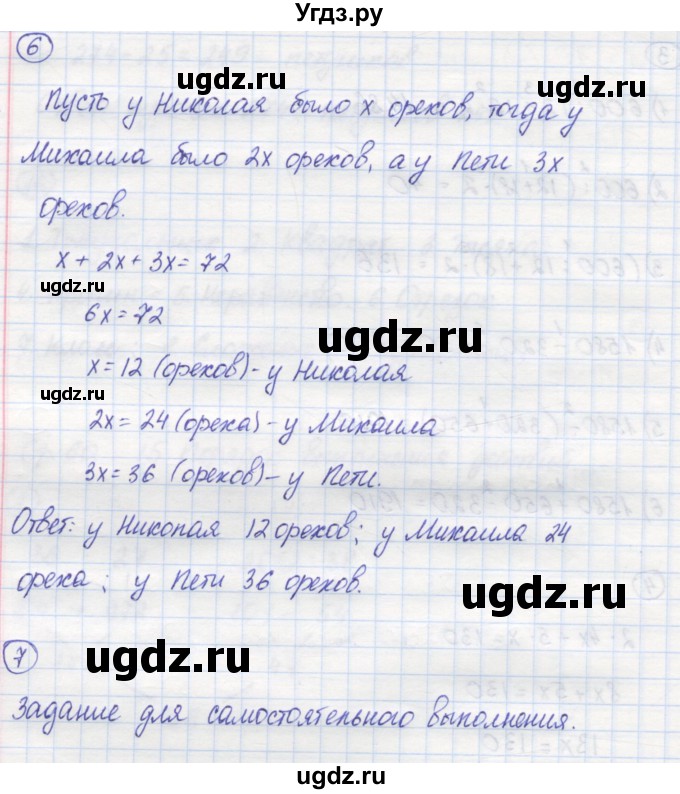 Угдз.ру
6
Пусть у Николая было x орехов, тогда у
Михаила было 2x орехов, а у Пети 3x
орехов.
x + 2x + 3x = 72
6x = 72
x = 12 (орехов) - у Николая
2x = 24 (ореха) - у Михаила
3x = 36 (орехов) - у Пети.
Ответ: у Николая 12 орехов; у Михаила 24
ореха; у Пети 36 орехов.
7
Задание для самостоятельного выполнения.
ugdz.ru
ugdz.ru
ugdz.ru
ugdz.ru
ugdz.ru
ugdz.ru
ugdz.ru
ugdz.ru
ugdz.ru